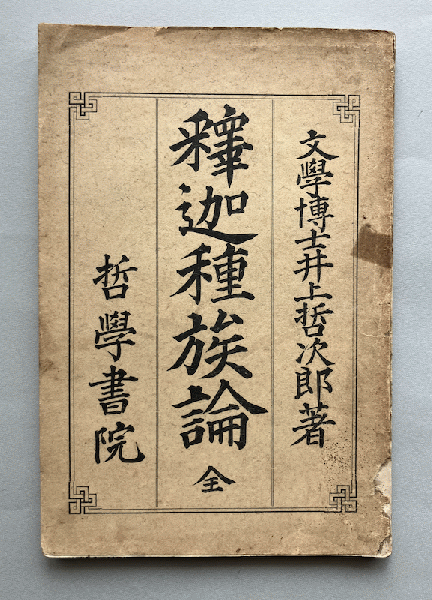 文學博士井上哲次郎著
釋迦種族論 全
哲學書院